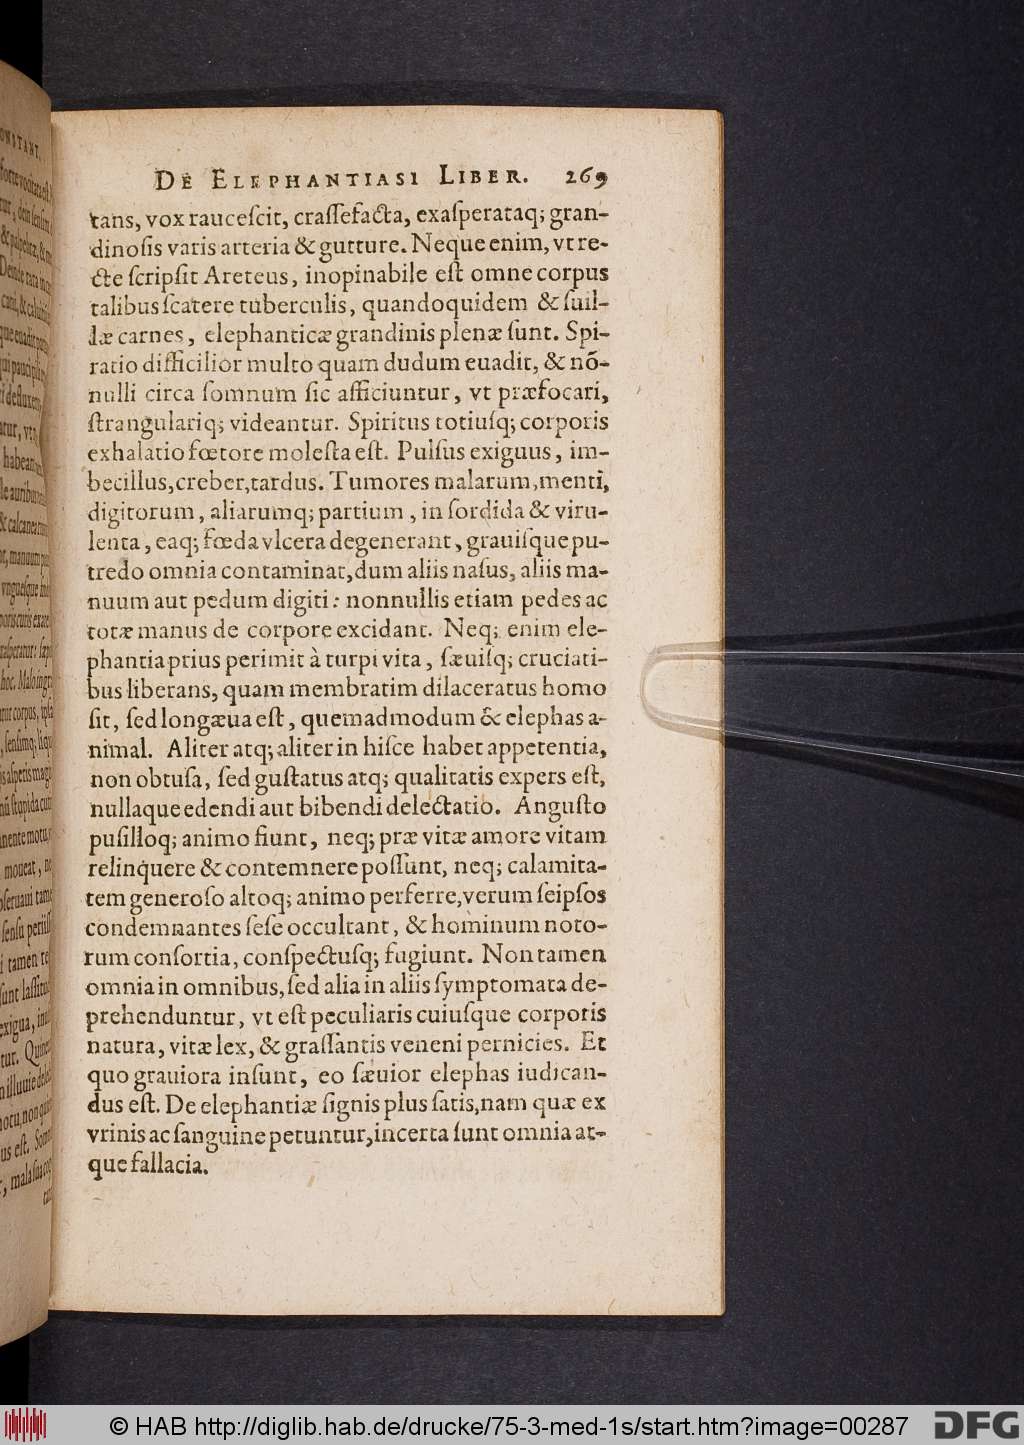 DE ELEPHANTIASI LIBER. 269
tans, vox raucescit, crassefacta, exasperataq; gran-
dinosis varis arteria & gutture. Neque enim, vt re-
cte scripsit Areteus, inopinabile est omne corpus
talibus scatere tuberculis, quandoquidem & suil-
læ carnes, elephanticæ grandinis plenæ sunt. Spi-
ratio difficilior multo quam dudum euadit, & nõ-
nulli circa somnum sic afficiuntur, vt præfocari,
strangulariq; videantur. Spiritus totiusq; corporis
exhalatio fœtore molesta est. Pulsus exiguus, im-
becillus, creber, tardus. Tumores malarum, menti,
digitorum, aliarumq; partium, in sordida & viru-
lenta, eaq; fœda vlcera degenerant, grauisque pu-
tredo omnia contaminat, dum aliis nasus, aliis ma-
nuum aut pedum digiti: nonnullis etiam pedes ac
totæ manus de corpore excidant. Neq; enim ele-
phantia prius perimit à turpi vita, sæuisq; cruciati-
bus liberans, quam membratim dilaceratus homo
sit, sed longæua est, quemadmodum & elephas a-
nimal. Aliter atq; aliter in hisce habet appetentia,
non obtusa, sed gustatus atq; qualitatis expers est,
nullaque edendi aut bibendi delectatio. Angusto
pusilloq; animo fiunt, neq; præ vitæ amore vitam
relinquere & contemnere possunt, neq; calamita-
tem generoso altoq; animo perferre, verum seipsos
condemnantes sese occultant, & hominum noto-
rum consortia, conspectusq; fugiunt. Non tamen
omnia in omnibus, sed alia in aliis symptomata de-
prehenduntur, vt est peculiaris cuiusque corporis
natura, vitæ lex, & grassantis veneni pernicies. Et
quo grauiora insunt, eo sæuior elephas iudican-
dus est. De elephantiæ signis plus satis, nam quæ ex
vrinis ac sanguine petuntur, incerta sunt omnia at-
que fallacia.
© HAB http://diglib.hab.de/drucke/75-3-med-1s/start.htm?image=00287
DFG